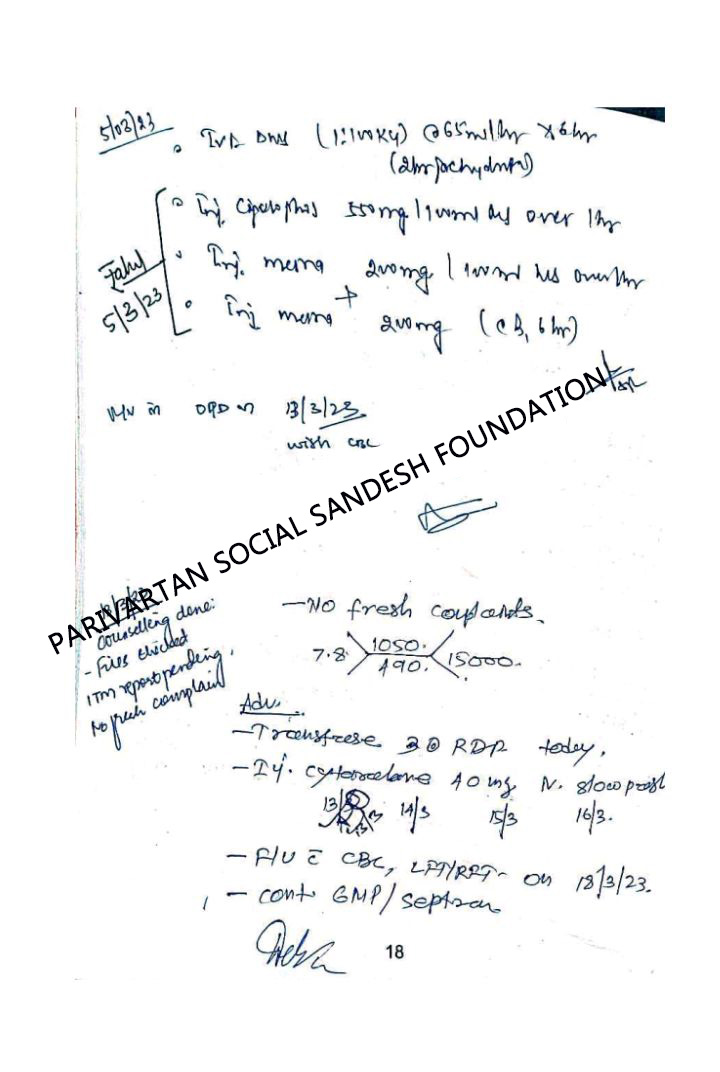 5/03/23
IVF DNS (1:100KCl) @65ml/hr x 6hr
(2hr prehydration)
Inj. 550mg / 100ml over 1hr
Inj. mesna 200mg / 100ml over 1hr
Inj mesna 200mg ( 3, 6 hr)
5/3/23
R/V in OPD on 13/3/23
with CBC
PARIVARTAN SOCIAL SANDESH FOUNDATION
Counselling done:
- Files checked
ITM report pending,
No fresh complain
- No fresh complaints.
7.8 1050. 15000.
490.
Adv.
- Transfuse RDP today.
- Inj. 40 mg IV. slow push
14/3 15/3 16/3.
- F/U c̄ CBC, LFT/RFT on 18/3/23.
- Cont. 6MP/septran
18